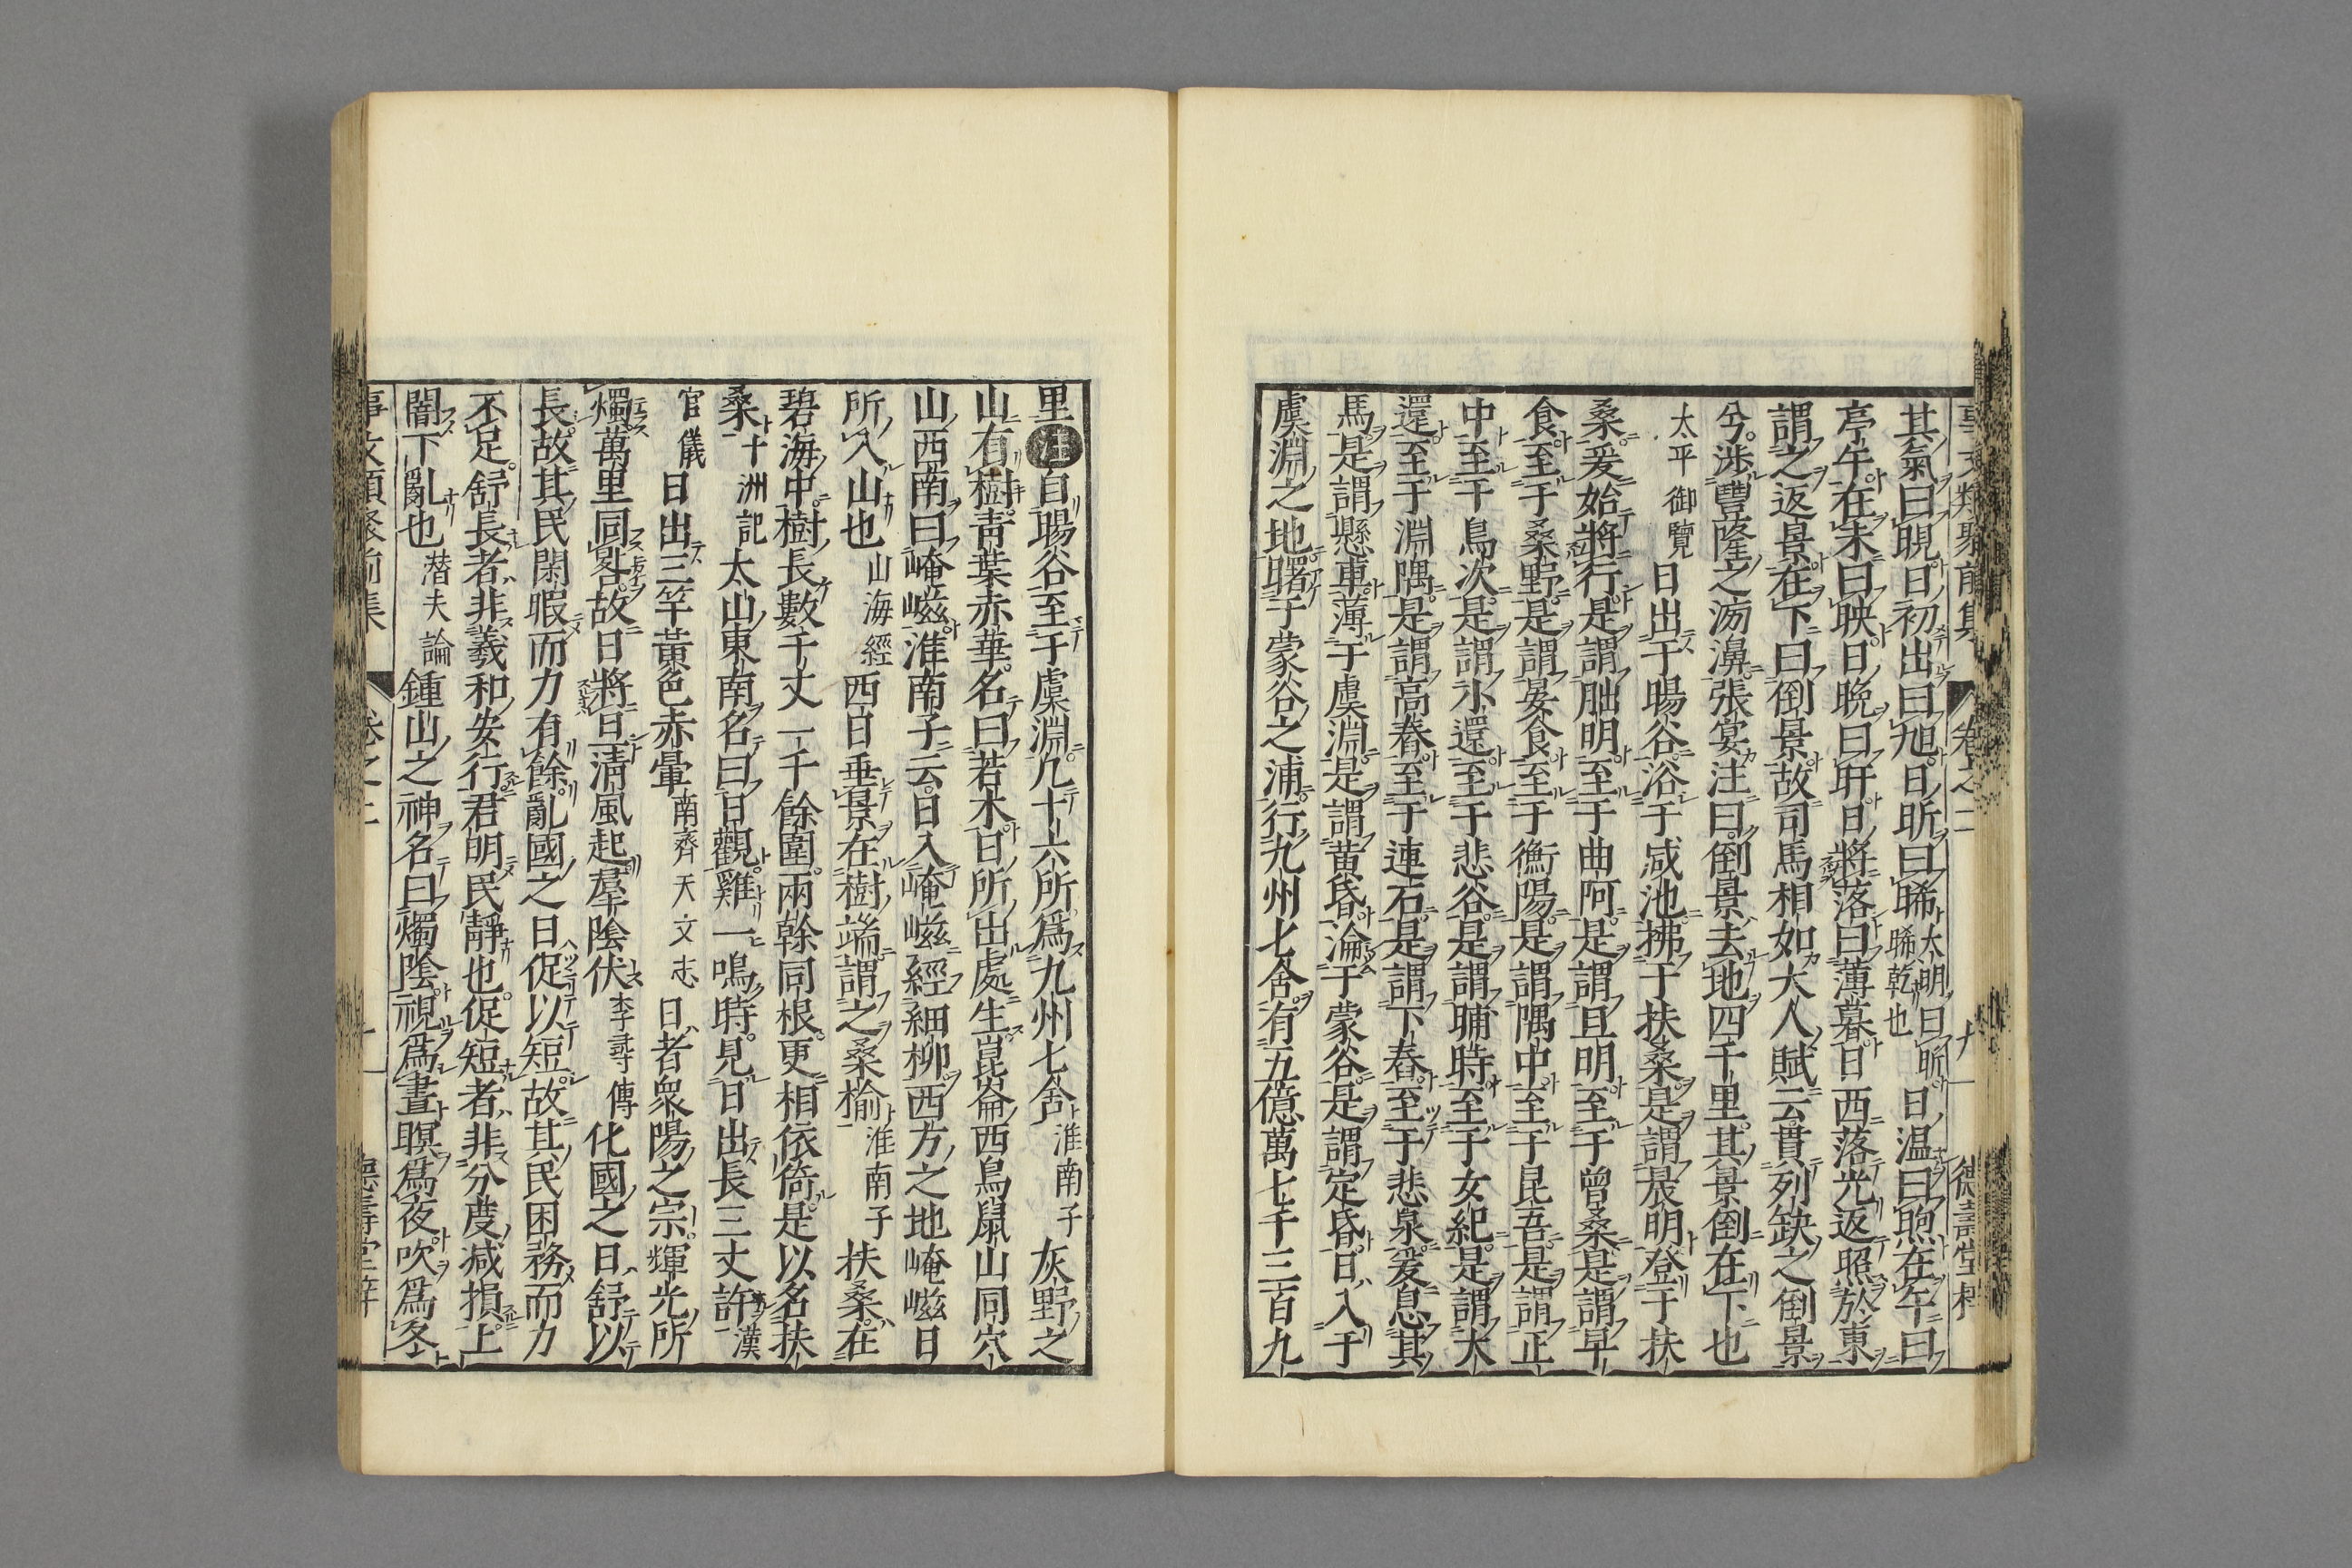 其氣曰晛日初出曰旭日昕曰晞太明曰昕晞乾也日温曰煦在午曰
亭午在未曰昳日晩曰旰日將落曰薄暮日西落光返照於東
謂之返景在下曰倒景故司馬相如大人賦云貫列缺之倒景
兮涉豐隆之滂濞張宴注曰倒景去地四千里其景倒在下也
太平御覽日出于暘谷浴于咸池拂于扶桑是謂晨明登于扶
桑爰始將行是謂朏明至于曲阿是謂旦明至于曾桑是謂早
食至于桑野是謂晏食至于衡陽是謂隅中至于昆吾是謂正
中至于鳥次是謂小還至于悲谷是謂晡時至于女紀是謂大
還至于淵隅是謂高舂至于連石是謂下舂至于悲泉爰息其
馬是謂懸車薄于虞淵是謂黄昏淪于蒙谷是謂定昏日入于
虞淵之地曙于蒙谷之浦行九州七舍有五億萬七千三百九
里注自暘谷至于虞淵凡十六所爲九州七舍淮南子灰野之
山有樹靑葉赤華名曰若木日所出處生崑崙西鳥鼠山同穴
山西南曰崦嵫淮南子云日入崦嵫經細柳西方之地崦嵫日
所入山也山海經西日垂景在樹端謂之桑榆淮南子扶桑在
碧海中樹長數千丈一千餘圍兩幹同根更相依倚是以名扶
桑十洲記太山東南名曰日觀雞一鳴時見日出長三丈許漢
官儀日出三竿黃色赤暈南齊天文志日者衆陽之宗輝光所
燭萬里同晷故日將旦淸風起羣陰伏李尋傳化國之日舒以
長故其民閑暇而力有餘亂國之日促以短故其民困務而力
不足舒長者非羲和安行君明民靜也促短者非分度減損上
闇下亂也潛夫論鍾山之神名曰燭陰視爲晝暝爲夜吹爲冬